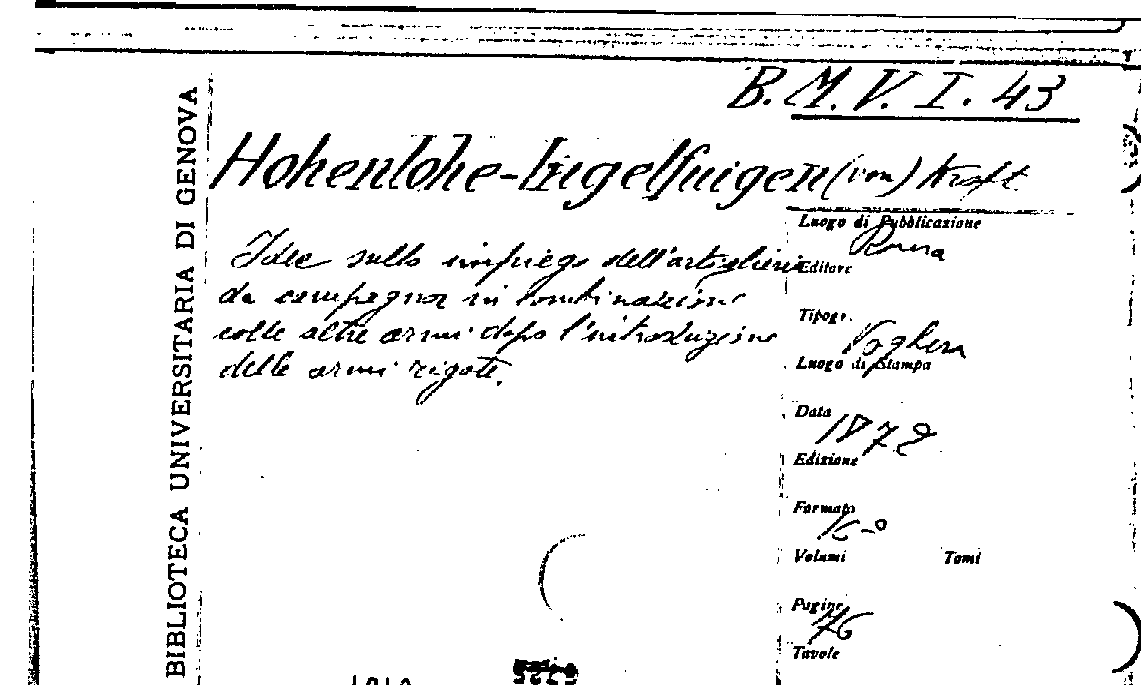 B. M. V. I. 43
BIBLIOTECA UNIVERSITARIA DI GENOVA
Hohenlohe-Ingelfingen (von) Kraft
Luogo di Pubblicazione
Roma
Idee sullo impiego dell'artiglieria
Editore
da campagna in combinazione
Tipogr.
colle altre armi dopo l'introduzione
Voghera
delle armi rigate.
Luogo di Stampa
Data
1872
Edizione
Formato
16-o
Volumi Tomi
Pagine
76
Tavole